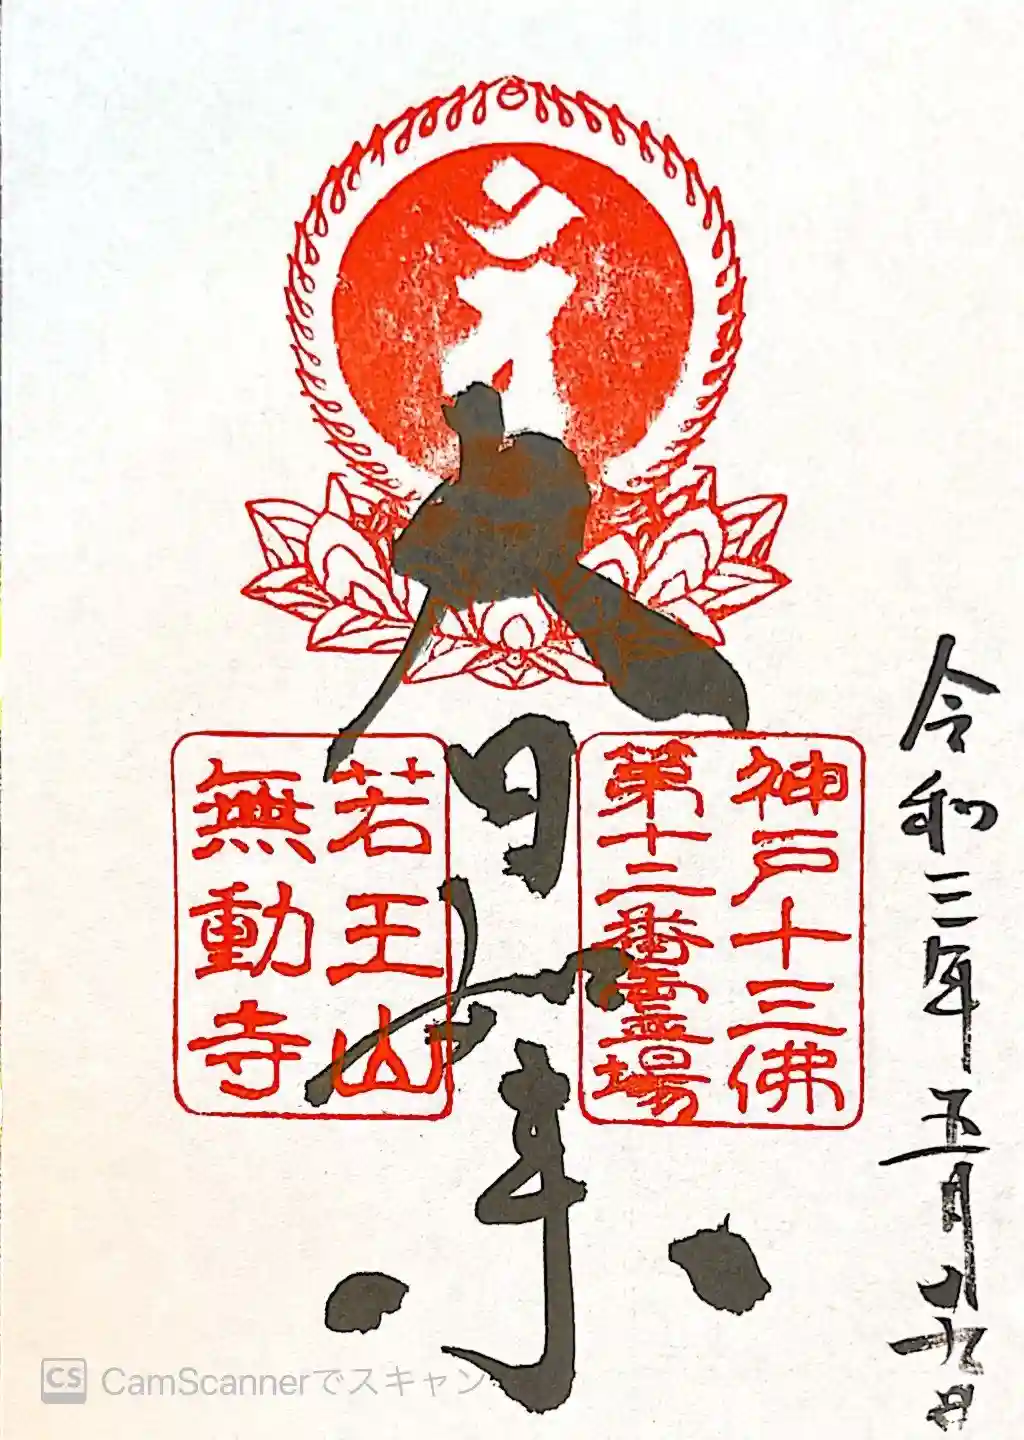 令和三年五月九日
神戸十三佛
第十二番霊場
大日如来
若王山
無動寺
CS CamScannerでスキャン